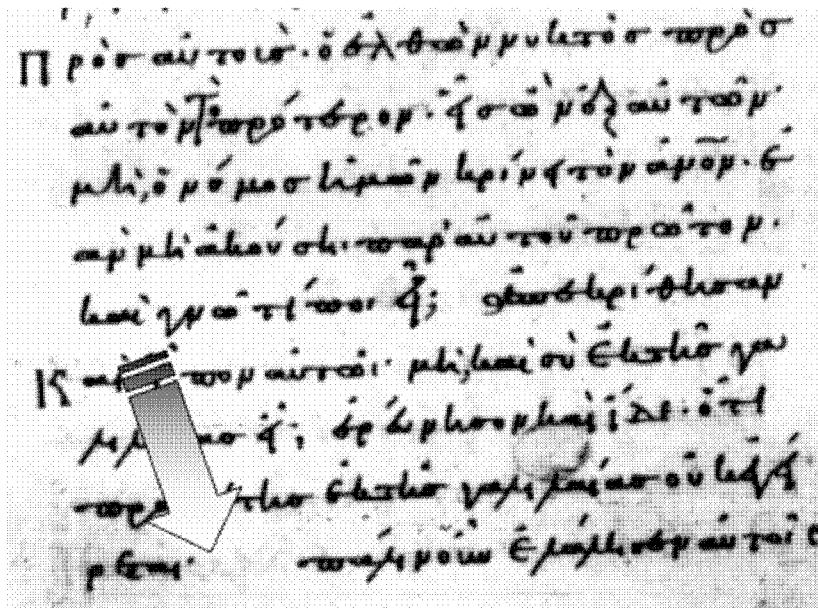 Πρὸς αὐτούς· ὁ ἐλθὼν νυκτὸς πρὸς
αὐτὸν τὸ πρότερον· εἷς ὢν ἐξ αὐτῶν·
μὴ ὁ νόμος ἡμῶν κρίνει τὸν ἄνον· ἐ
ὰν μὴ ἀκούσῃ παρ' αὐτοῦ πρῶτον·
καὶ γνῶ τί ποιεῖ; ἀπεκρίθησαν
Καὶ αὐτῶ· μὴ καὶ σὺ ἐκ τῆς γα
εἶ; ἐρεύνησον καὶ ἴδε· ὅτι
ἐκ τῆς γαλιλαίας οὐκ ἐγεί
ρεται· πάλιν οὖν ἐλάλησεν